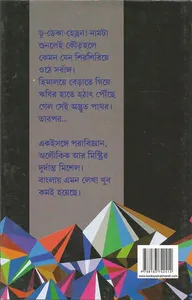 ডু-ডেকা-হেড্রন! নামটা
শুনলেই কৌতূহলে
কেমন যেন শিরশিরিয়ে
ওঠে সর্বাঙ্গ।
হিমালয়ে বেড়াতে গিয়ে
ঋষির হাতে হঠাৎ পৌঁছে
গেল সেই অদ্ভুত পাথর।
তারপর...
একইসঙ্গে পরাবিজ্ঞান,
অলৌকিক আর মিস্ট্রির
দুর্দান্ত মিশেল।
বাংলায় এমন লেখা খুব
কমই হয়েছে।